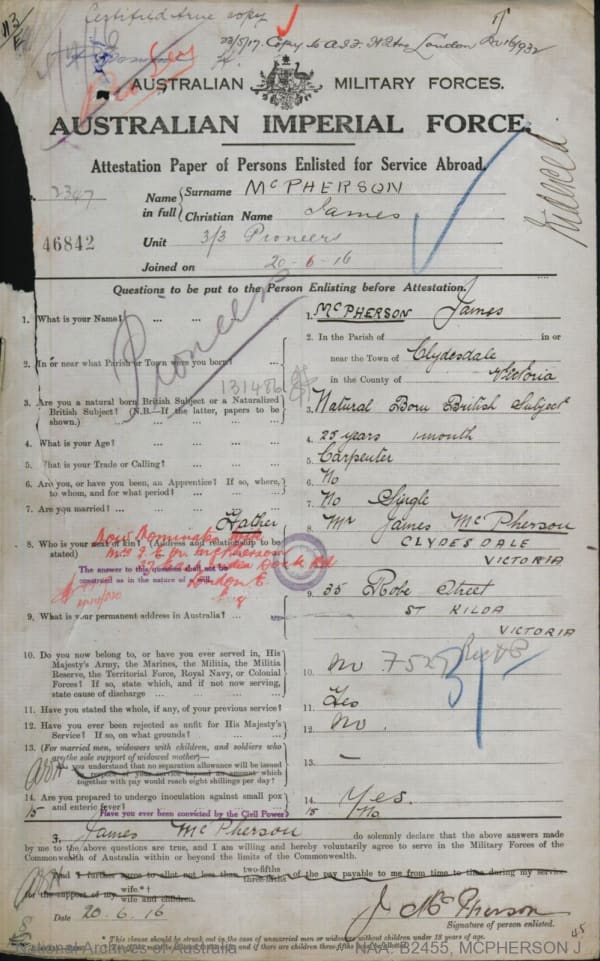 113
Certified true copy
23/5/17. Copy to A.I.F. Hdqrs London
AUSTRALIAN MILITARY FORCES.
AUSTRALIAN IMPERIAL FORCE.
Attestation Paper of Persons Enlisted for Service Abroad.
2347
Name in full { Surname McPHERSON
Christian Name James
46842
Unit 3/3 Pioneers
Joined on 20-6-16
Indexed
Questions to be put to the Person Enlisting before Attestation.
Pioneers
1. What is your Name? ... ... ... 1. McPHERSON James
2. In or near what Parish or Town were you born? ... 2. In the Parish of in or
near the Town of Clydesdale
in the County of Victoria
131486
3. Are you a natural born British Subject or a Naturalized British Subject? (N.B.—If the latter, papers to be shown.) 3. Natural Born British Subject
4. What is your Age? ... ... ... 4. 25 years 1 month
5. What is your Trade or Calling? ... ... 5. Carpenter
6. Are you, or have you been, an Apprentice? If so, where, to whom, and for what period? ... ... 6. No
7. Are you married? ... ... ... 7. No Single
Father
8. Who is your next of kin? (Address and relationship to be stated) 8. Mr James McPHERSON
CLYDESDALE
VICTORIA
now Nominates wife
Mrs
India Dock Rd
London E.
The answer to this question shall not be
construed as in the nature of a will.
9. What is your permanent address in Australia? ... 9. 35 Robe Street
ST KILDA
VICTORIA
10. Do you now belong to, or have you ever served in, His
Majesty's Army, the Marines, the Militia, the Militia
Reserve, the Territorial Force, Royal Navy, or Colonial
Forces? If so, state which, and if not now serving,
state cause of discharge ... ... ... 10. No
11. Have you stated the whole, if any, of your previous service? 11. Yes
12. Have you ever been rejected as unfit for His Majesty's
Service? If so, on what grounds? ... ... 12. No.
13. (For married men, widowers with children, and soldiers who
are the sole support of widowed mother)—
Do you understand that no separation allowance will be issued
in respect of your service beyond an amount which
together with pay would reach eight shillings per day? 13. —
14. Are you prepared to undergo inoculation against small pox
and enteric fever? 14. Yes.
15 Have you ever been convicted by the Civil Power? 15 No
I, James McPHERSON do solemnly declare that the above answers made
by me to the above questions are true, and I am willing and hereby voluntarily agree to serve in the Military Forces of the
Commonwealth of Australia within or beyond the limits of the Commonwealth.
And I further agree to allot not less than two-fifths three-fifths of the pay payable to me from time to time during my service
for the support of my wife.*† wife and children.
Date 20.6.16
J McPherson
Signature of person enlisted.
45
* This clause should be struck out in the case of unmarried men or widowers without children under 18 years of age.
National Archives of Australia
NAA: B2455, MCPHERSON J